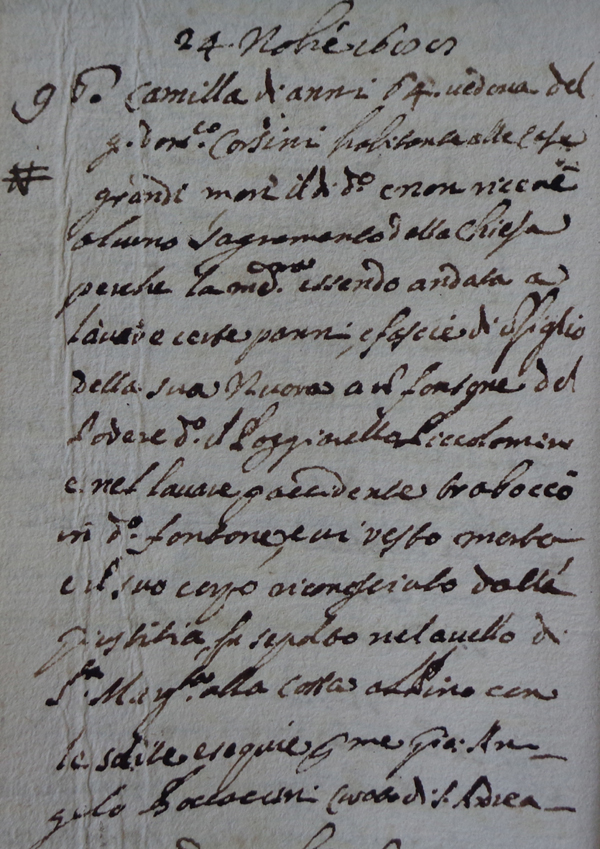 24. Nobre
9 Da. Camilla di anni 64. vedova del
q. Domco. Corsini habitante alle Case
grandi morì il dì do. e non riceuè
alcuno Sagramento della Chiesa
perche la meda. essendo andata a
lavare certe panni, e fascie di
della sua Nuora a un fontone del
Podere do. il Poggiarello Piccolomini
e nel lavare p accidente traboccò
in do. fontone, e vi restò morta
e il suo corpo riconosciuto dalla
giustitia fu sepolto nel avello di
Sta. Marga. alla Costa al Pino con
le solite esequie p me Gio: An-
gelo Curato di S. Andrea